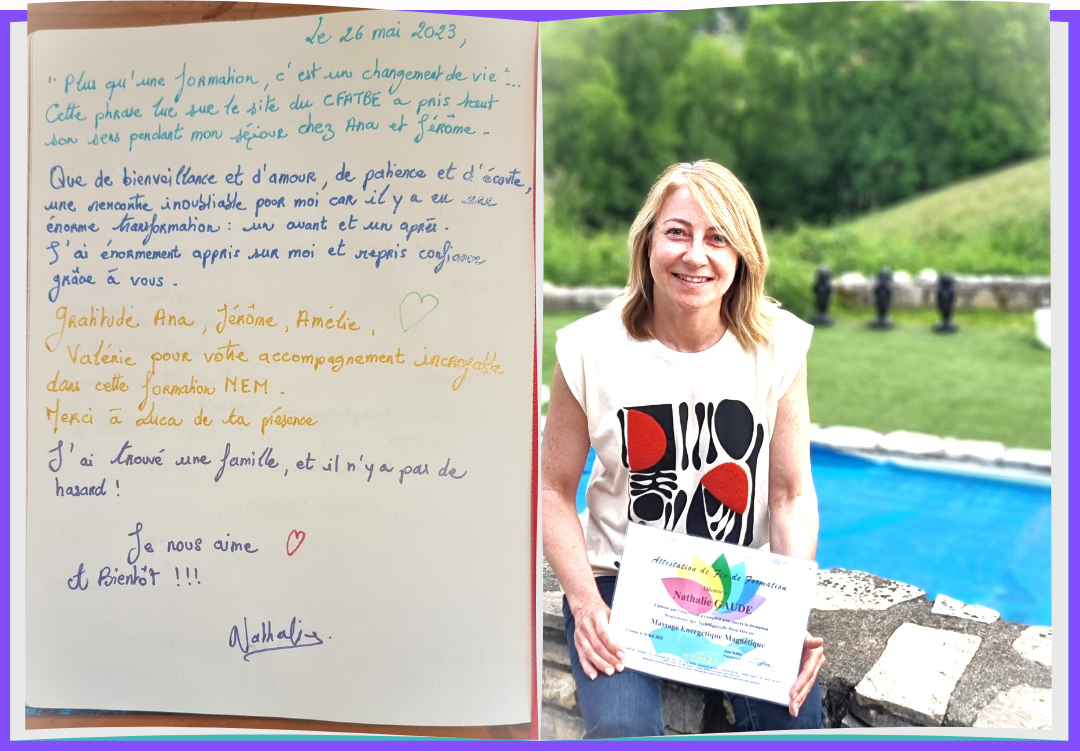 Le 26 mai 2023,
"Plus qu'une formation, c'est un changement de vie"...
Cette phrase lue sur le site du CFATBE a pris tout
son sens pendant mon séjour chez Ana et Jérôme.
Que de bienveillance et d'amour, de patience et d'écoute,
une rencontre inoubliable pour moi car il y a eu une
énorme transformation : un avant et un après.
J'ai énormement appris sur moi et repris confiance
grâce à vous.
Gratitude Ana, Jérôme, Amélie,
Valérie pour votre accompagnement incroyable
dans cette formation MEM.
Merci à Luca de ta présence
J'ai trouvé une famille, et il n'y a pas de
hasard !
Je nous aime
et Bientôt !!!
Nathalie.
Attestation de Fin de Formation
Nathalie GAUDE
Massage Energétique Magnétique